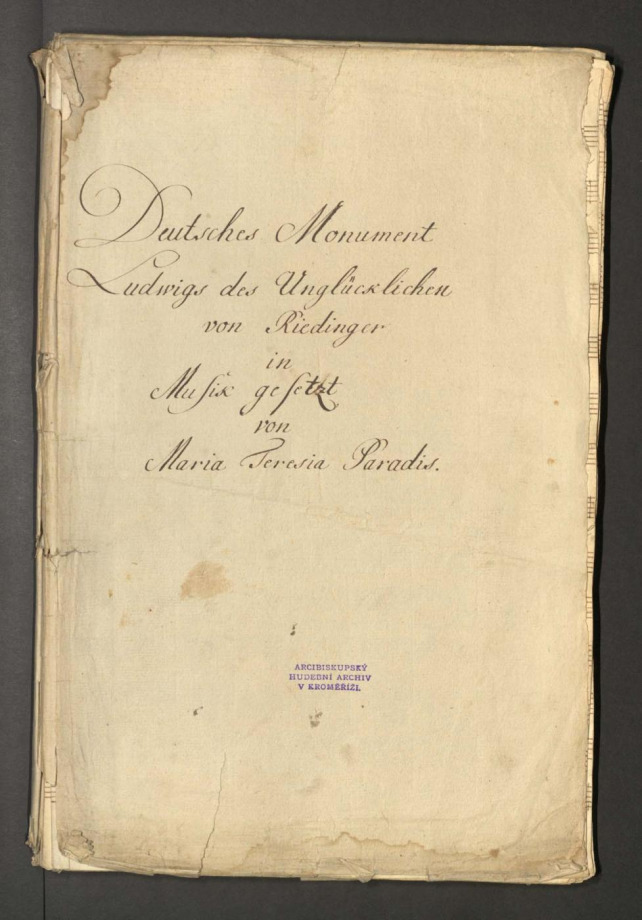 Deutsches Monument
Ludwigs des Unglücklichen
von Riedinger
in
Musik gesetzt
von
Maria Teresia Paradis.
ARCIBISKUPSKÝ
HUDEBNÍ ARCHIV
V KROMĚŘÍŽI.